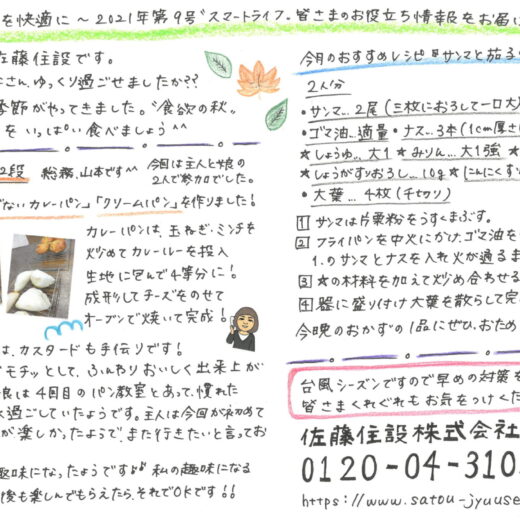 を快適に～2021年第9号〝スマートライフ〟皆さまのお役立ち情報をお届け
佐藤住設です。
さん、ゆっくり過ごせましたか??
季節がやってきました。〝食欲の秋〟
をいっぱい食べましょう^^
2段 総務、山本です^^ 今回は主人と娘の
2人で参加でした。
ないカレーパン」「クリームパン」を作りました!
カレーパンは、玉ねぎ・ミンチを
炒めてカレールーを投入
生地に包んで4等分に!
成形してチーズをのせて
オーブンで焼いて完成!
は、カスタードも手作りです!
モチッとして、ふんわりおいしく出来上が
娘は4回目のパン教室とあって、慣れた
過ごしていたようです。主人は今回が初めて
が楽しかったようで、また行きたいと言ってお
趣味になったようです♪♪ 私の趣味になる
後も楽しんでもらえたら、それでOKです!!
今月のおすすめレシピ サンマと茄子
2人分
・サンマ…2尾(三枚におろして一口大)
・ゴマ油…適量 ・ナス…3本(1cm厚さ
★しょうゆ…大1 ★みりん…大1強 ★
★しょうがすりおろし…10g ★にんにくす
・大葉…4枚(千切り)
1 サンマは片栗粉をうすくまぶす。
2 フライパンを中火にかけ、ゴマ油を
1.のサンマとナスを入れ火が通るま
3 ★の材料を加えて炒め合わせる
4 器に盛り付け大葉を散らして完
今晩のおかずの1品にぜひ、おため
台風シーズンですので早めの対策を
皆さまくれぐれもお気をつけくだ
佐藤住設株式会社
0120-04-310
https://www.satou-jyuuse